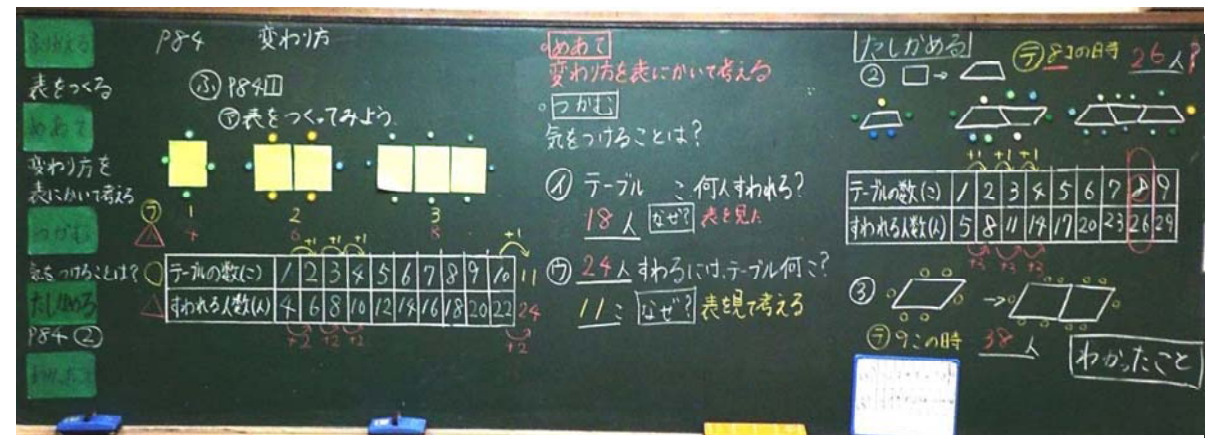 ふりかえる
表をつくる
めあて
変わり方を
表にかいて考える
つかむ
気をつけることは?
たしかめる
P84 ②
P84 変わり方
ふ P84 1
ア 表をつくってみよう
1 2 3
4 6 8
+1 +1 +1 +1
テーブルの数(こ) 1 2 3 4 5 6 7 8 9 10 11
すわれる人数(人) 4 6 8 10 12 14 16 18 20 22 24
+2 +2 +2 +2
めあて
変わり方を表にかいて考える
つかむ
気をつけることは?
イ テーブル こ 何人すわれる?
18人 なぜ? 表を見た
ウ 24人すわるには、テーブル何こ?
11こ なぜ? 表を見て考える
たしかめる
テ 8この時 26人?
② □→
+1 +1 +1
テーブルの数(こ) 1 2 3 4 5 6 7 8 9
すわれる人数(人) 5 8 11 14 17 20 23 26 29
+3 +3 +3
③ →
テ 9この時 38人
わかったこと